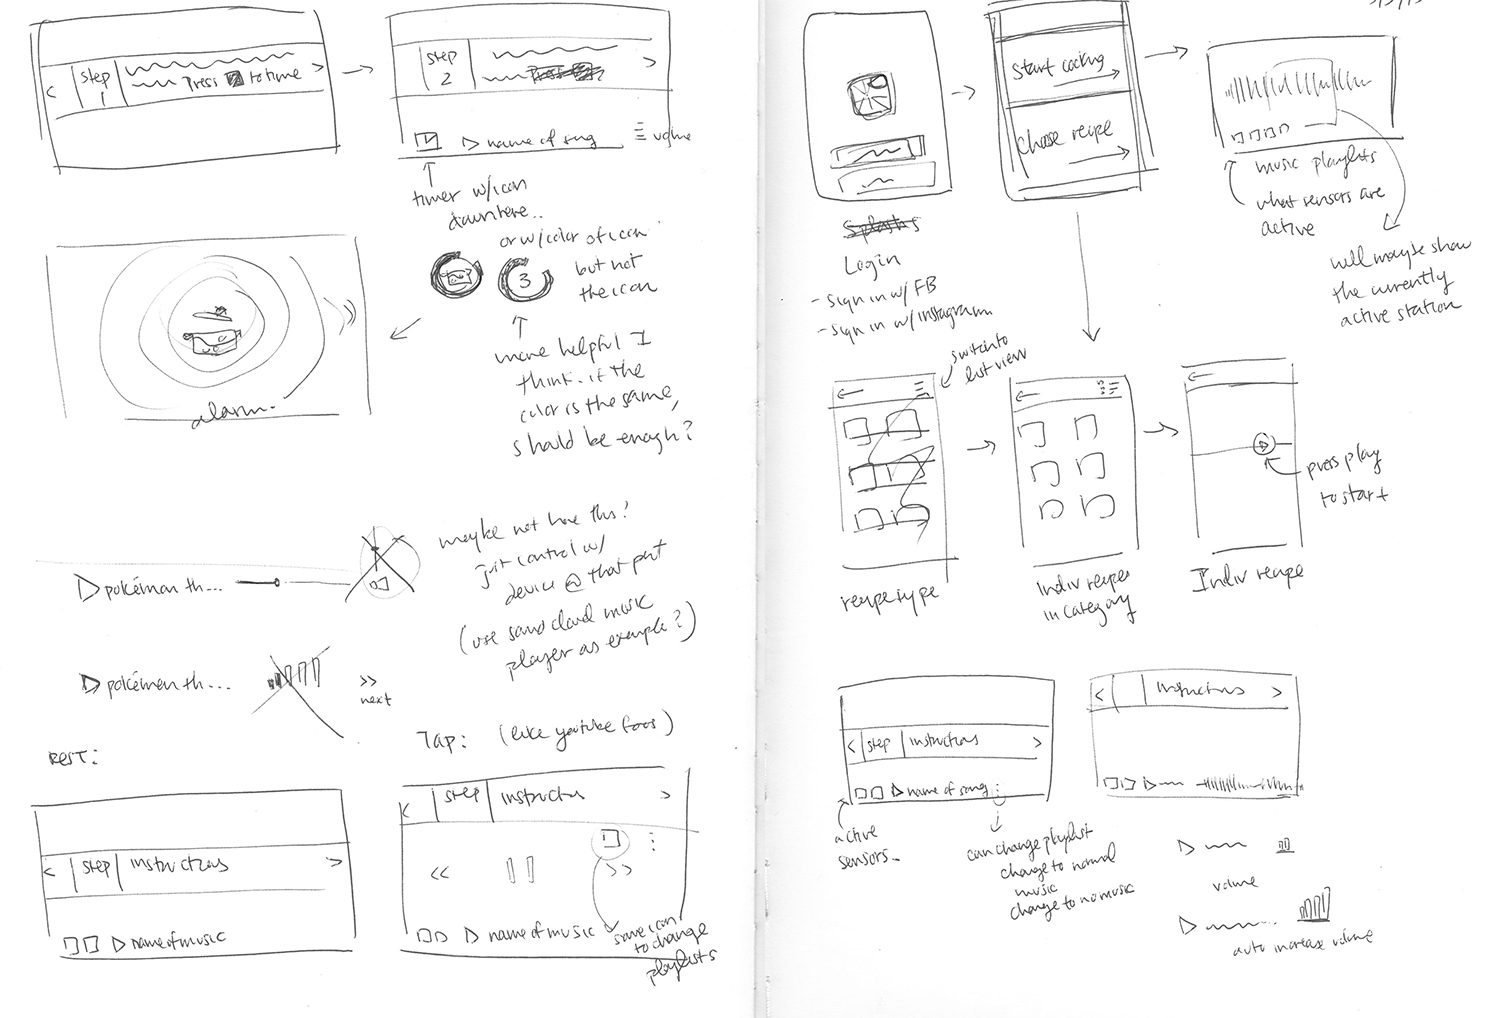 <
step
1
Press to time
>
step
2
>
name of song
volume
timer w/icon
down here..
or w/color of icon
but not
the icon
3
more helpful I
think. if the
color is the same,
should be enough?
alarm.
pokémon th...
maybe not have this?
just control w/
device @ that part
(use sound cloud music
player as example?)
pokémon th...
>>
next
REST:
<
step
instructions
>
name of music
Tap: (like youtube
<
step
instructns
>
<<
>>
name of music
same icon
to change
playlists
start cooking
choose recipe
music playlists
what sensors are
active
will maybe show
the currently
active station
Splash
Login
- sign in w/ FB
- sign in w/instagram
switch to
list view
recipe type
Indiv recipes
in category
press play
to start
Indiv recipe
<
step
instructions
>
name of song
active
sensors
can change playlist
change to normal
music
change to no music
<
instructions
>
volume
auto increase volume